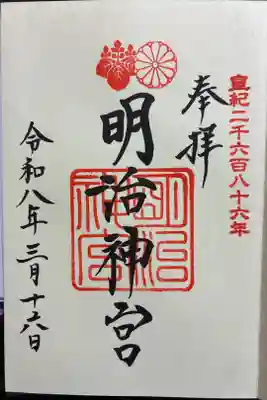 皇紀二千六百八十六年
奉拝
明治神宮
明治神宮
令和八年三月十六日